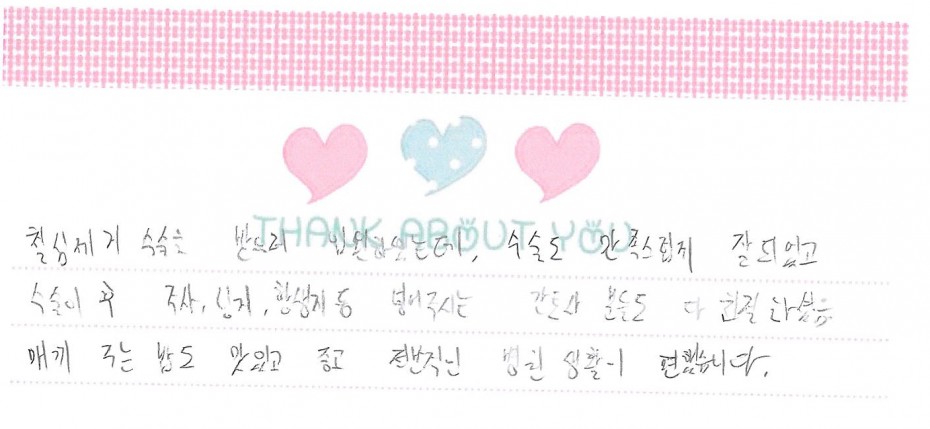 THANK ABOUT YOU
철심제거 수술을 받으러 입원했었는데, 수술도 만족스럽게 잘 되었고
수술이 후 주사, 항생제 등 넣어주시는 간호사 분들도 다 친절하셨음
매끼 주는 밥도 맛있고 좋고 전반적인 병원 생활이 편했습니다.